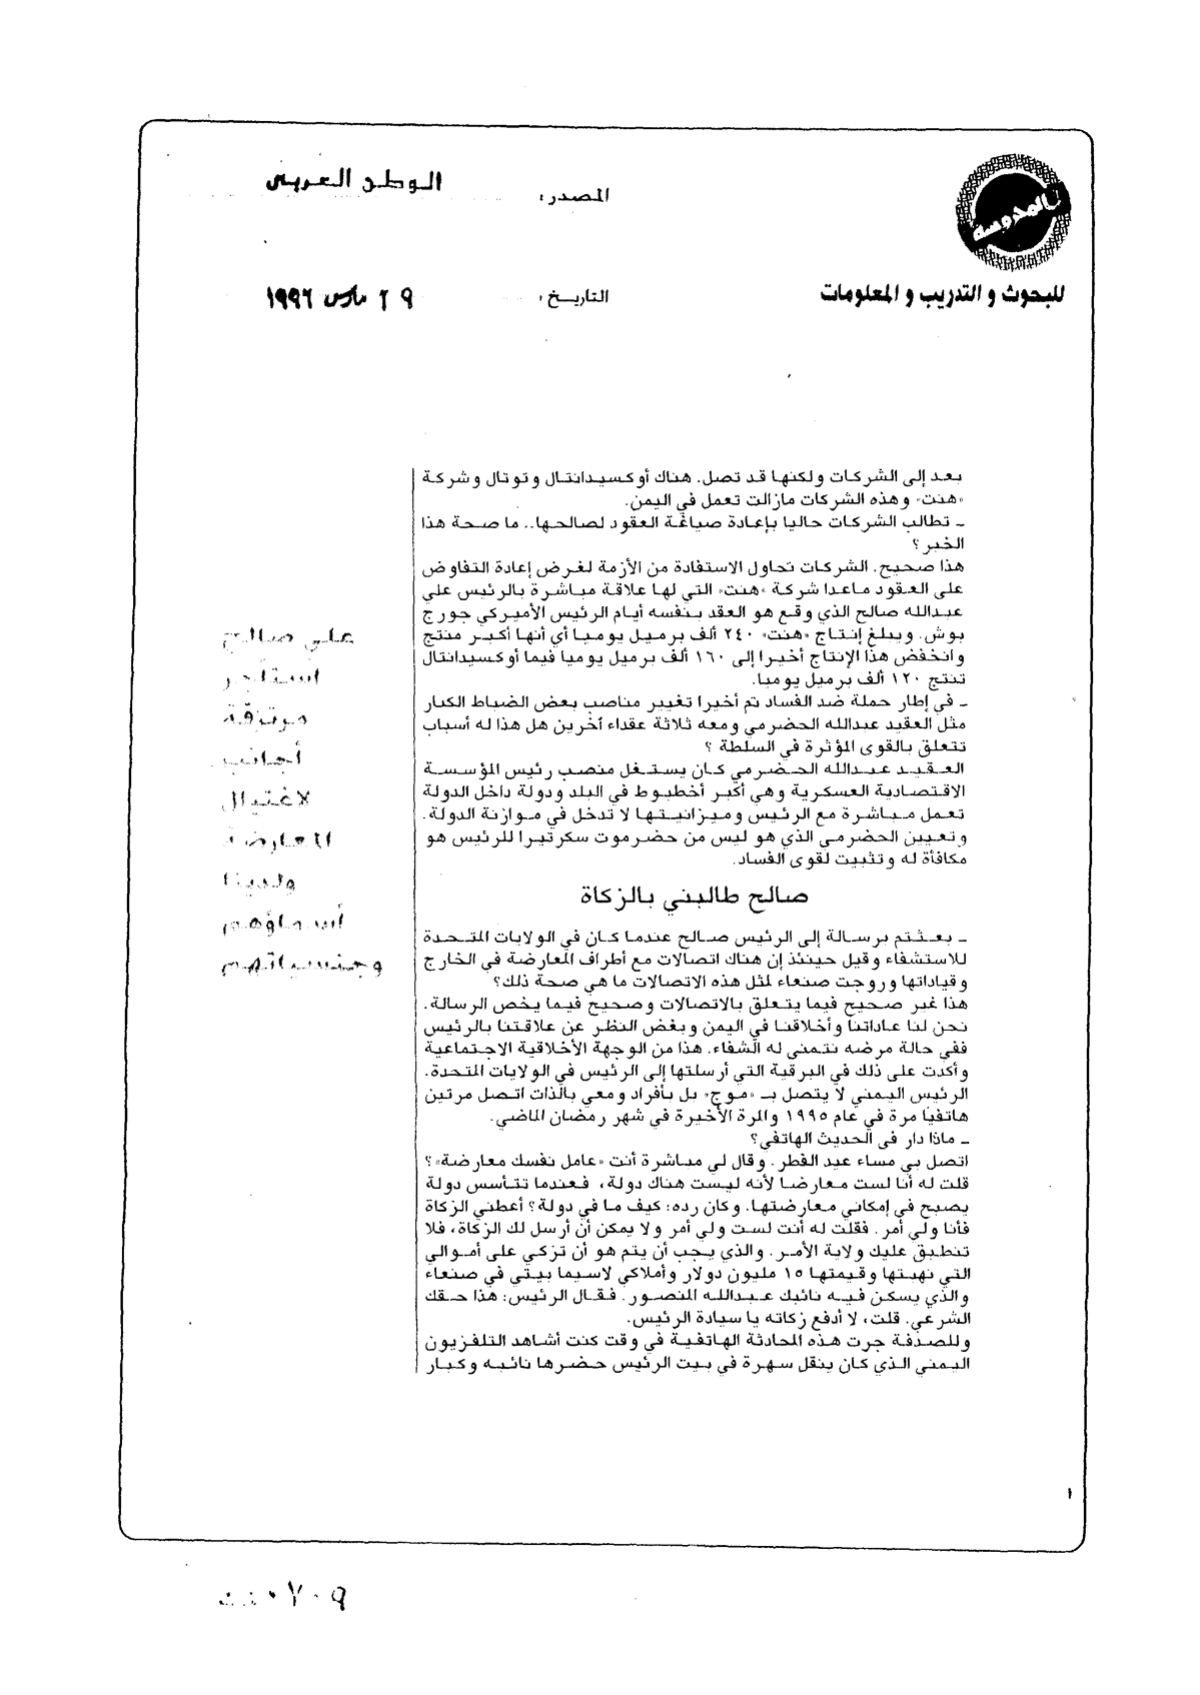 المدوسة
للبحوث و التدريب و المعلومات
المصدر: الوطن العربي
التاريخ: ٢٩ مارس ١٩٩٦
بعد إلى الشركات ولكنها قد تصل. هناك أوكسيدانتال وتوتال وشركة
«هنت» وهذه الشركات مازالت تعمل في اليمن.
ـ تطالب الشركات حاليا بإعادة صياغة العقود لصالحها.. ما صحة هذا
الخبر؟
هذا صحيح. الشركات تحاول الاستفادة من الأزمة لغرض إعادة التفاوض
على العقود ماعدا شركة «هنت» التي لها علاقة مباشرة بالرئيس علي
عبدالله صالح الذي وقع هو العقد بنفسه أيام الرئيس الأميركي جورج
بوش. ويبلغ إنتاج «هنت» ٢٤٠ ألف برميل يوميا أي أنها أكبر منتج
وانخفض هذا الإنتاج أخيرا إلى ١٦٠ ألف برميل يوميا فيما أوكسيدانتال
تنتج ١٢٠ ألف برميل يوميا.
ـ في إطار حملة ضد الفساد تم أخيرا تغيير مناصب بعض الضباط الكبار
مثل العقيد عبدالله الحضرمي ومعه ثلاثة عقداء أخرين هل هذا له أسباب
تتعلق بالقوى المؤثرة في السلطة ؟
العقيد عبدالله الحضرمي كان يستغل منصب رئيس المؤسسة
الاقتصادية العسكرية وهي أكبر أخطبوط في البلد ودولة داخل الدولة
تعمل مباشرة مع الرئيس وميزانيتها لا تدخل في موازنة الدولة.
وتعيين الحضرمي الذي هو ليس من حضرموت سكرتيرا للرئيس هو
مكافأة له وتثبيت لقوى الفساد.
صالح طالبني بالزكاة
ـ بعثتم برسالة إلى الرئيس صالح عندما كان في الولايات المتحدة
للاستشفاء وقيل حينئذ إن هناك اتصالات مع أطراف المعارضة في الخارج
وقياداتها وروجت صنعاء لمثل هذه الاتصالات ما هي صحة ذلك؟
هذا غير صحيح فيما يتعلق بالاتصالات وصحيح فيما يخص الرسالة.
نحن لنا عاداتنا وأخلاقنا في اليمن وبغض النظر عن علاقتنا بالرئيس
ففي حالة مرضه نتمنى له الشفاء. هذا من الوجهة الأخلاقية الاجتماعية
وأكدت على ذلك في البرقية التي أرسلتها إلى الرئيس في الولايات المتحدة.
الرئيس اليمني لا يتصل بـ «موج» بل بأفراد ومعي بالذات اتصل مرتين
هاتفيا مرة في عام ١٩٩٥ والمرة الأخيرة في شهر رمضان الماضي.
ـ ماذا دار في الحديث الهاتفي؟
اتصل بي مساء عيد الفطر. وقال لي مباشرة أنت «عامل نفسك معارضة»؟
قلت له أنا لست معارضا لأنه ليست هناك دولة، فعندما تتأسس دولة
يصبح في إمكاني معارضتها. وكان رده: كيف ما في دولة؟ أعطني الزكاة
فأنا ولي أمر. فقلت له أنت لست ولي أمر ولا يمكن أن أرسل لك الزكاة، فلا
تنطبق عليك ولاية الأمر. والذي يجب أن يتم هو أن تزكي على أموالي
التي نهبتها وقيمتها ١٥ مليون دولار وأملاكي لاسيما بيتي في صنعاء
والذي يسكن فيه نائبك عبدالله المنصور. فقال الرئيس: هذا حقك
الشرعي. قلت، لا أدفع زكاته يا سيادة الرئيس.
وللصدفة جرت هذه المحادثة الهاتفية في وقت كنت أشاهد التلفزيون
اليمني الذي كان ينقل سهرة في بيت الرئيس حضرها نائبه وكبار
علي صالح
استأجر
مرتزقة
أجانب
لاغتيال
المعارضة
ولدينا
أسماؤهم
وجنسياتهم
١